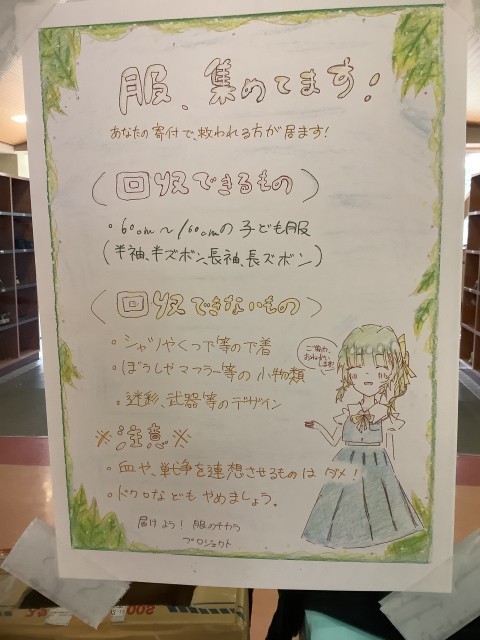 服、集めてます!
あなたの寄付で、救われる方が居ます!
(回収できるもの)
・60cm〜160cmの子ども服
(半袖、半ズボン、長袖、長ズボン)
(回収できないもの)
・シャツやくつ下等の下着
・ぼうしやマフラー等の小物類
・迷彩、武器等のデザイン
※注意※
・血や、戦争を連想させるものはダメ!
・ドクロなどもやめましょう。
ご協力、
おねがい
します!
届けよう!服のチカラ
プロジェクト